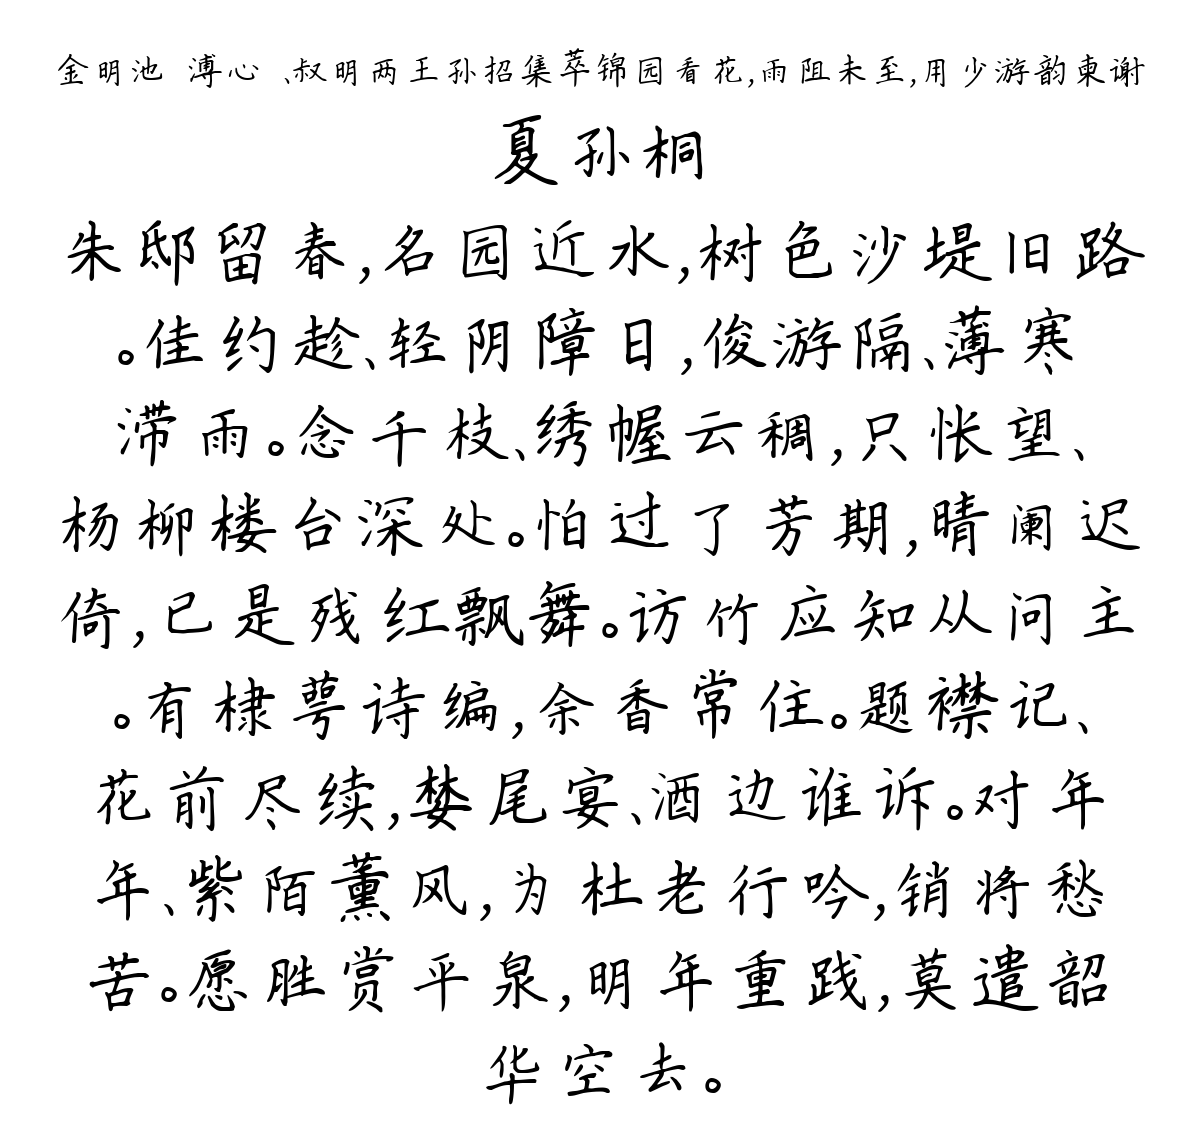 金明池 溥心 、叔明两王孙招集萃锦园看花,雨阻未至,用少游韵柬谢
夏孙桐
朱邸留春,名园近水,树色沙堤旧路
。佳约趁、轻阴障日,俊游隔、薄寒
滞雨。念千枝、绣幄云稠,只怅望、
杨柳楼台深处。怕过了芳期,晴阑迟
倚,已是残红飘舞。访竹应知从问主
。有棣萼诗编,余香常住。题襟记、
花前尽续,婪尾宴、酒边谁诉。对年
年、紫陌薰风,为杜老行吟,销将愁
苦。愿胜赏平泉,明年重践,莫遣韶
华空去。